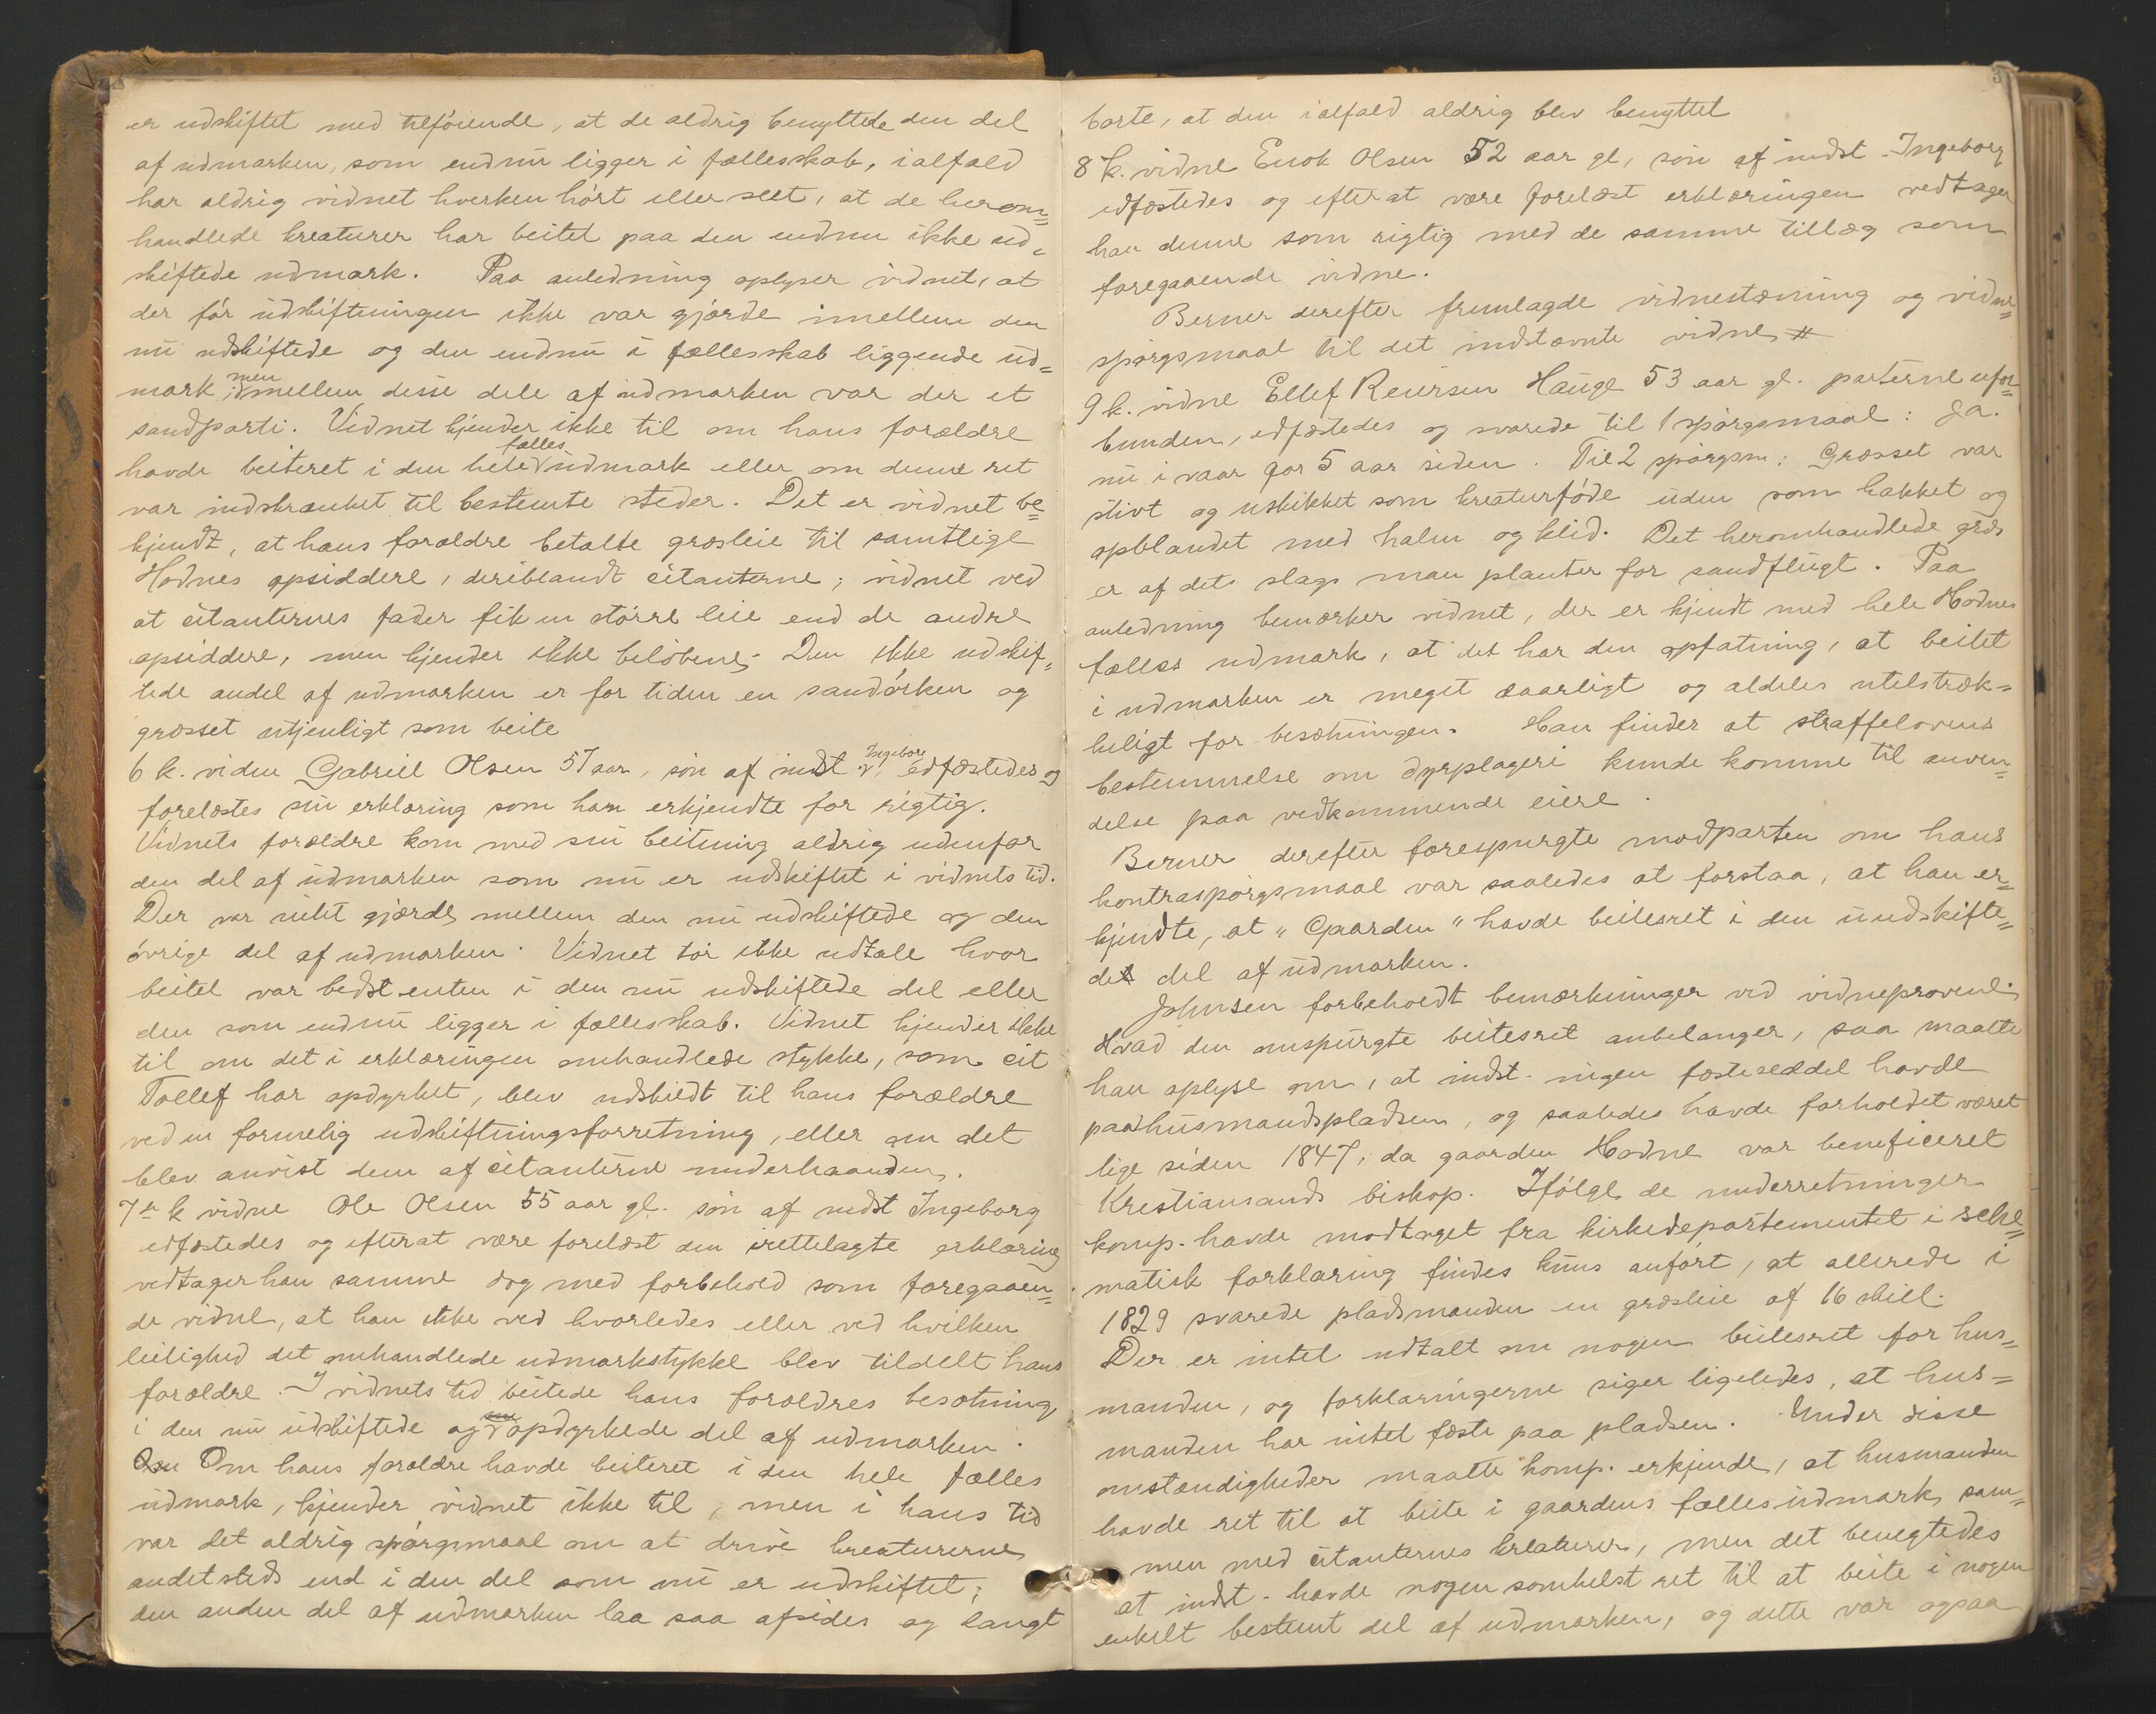 er udskiftet med tilføiende, at de aldrig benyttede den del
af udmarken, som endnu ligger i fællesskab, ialfald
har aldrig vidnet hverken hørt eller seet, at de herom=
handlede kreaturer har beitet paa den endnu ikke ud=
skiftede udmark. Paa anledning oplyser vidnet, at
der før udskiftningen ikke var gjærde imellem den
nu udskiftede og den endnu i fællesskab liggende ud=
mark, men imellem disse dele af udmarken var der et
sandparti. Vidnet kjender ikke til om hans forældre
havde beiteret i den hele fælles udmark eller om denne ret
var indskrænket til bestemte steder. Det er vidnet be=
kjendt, at hans forældre betalte græsleie til samtlige
Hodnes opsiddere, deriblandt citanterne; vidnet ved
at citanternes fader fik en større leie end de andre
opsiddere, men kjender ikke beløbene. Den ikke udskif=
tede andel af udmarken er for tiden en sandørken og
græsset utjenligt som beite
6 k. viden Gabriel Olsen 57 aar, søn af indst. Ingeborg edfæstedes og
forelæstes sin erklæring som han erkjendte for rigtig.
Vidnets forældre kom med sin beitning aldrig udenfor
den del af udmarken som nu er udskiftet i vidnets tid.
Der var intet gjærde mellem den nu udskiftede og den
øvrige del af udmarken. Vidnet tør ikke udtale hvor
beitet var bedst enten i den nu udskiftede del eller
den som endnu ligger i fællesskab. Vidnet kjender ikke
til om det i erklæringen omhandlede stykke, som cit
Tollef har opdyrket, blev udskiedt til hans forældre
ved en formelig udskiftningsforretning, eller om det
blev anvist dem af citanterne underhaanden.
7de k vidne Ole Olsen 55 aar gl. søn af indst Ingeborg
edfæstedes og efterat være forelæst den irettelagte erklæring
vedtager han samme dog med forbehold som foregaaen=
de vidne, at han ikke ved hvorledes eller ved hvilken
leilighed det omhandlede udmarkstykke blev tildelt hans
forældre. I vidnets tid beitede hans forældres besætning
i den nu udskiftede og opdyrkede del af udmarken.
Om hans forældre havde beiteret i den hele fælles
udmark, kjender vidnet ikke til, men i hans tid
var det aldrig spørgsmaal om at drive kreaturerne
andetsteds end i den del som nu er udskiftet;
den anden del af udmarken laa saa afsides og langt
borte, at den ialfald aldrig blev benyttet
8 k. vidne Enok Olsen 52 aar gl, søn af indst. Ingeborg
edfæstedes og efterat være forelæst erklæringen vedtager
han denne som rigtig med de samme tillæg som
foregaaende vidne.
Berner derefter fremlagde vidnestævning og vidne=
spørgsmaal til det indstævnte vidne
9 k. vidne Ellef Reiersen Hauge 53 aar gl. parterne ufor=
bunden, edfæstedes og svarede til 1 spørgsmaal: Ja.
nu i vaar for 5 aar siden. Til 2 spørgsm: Græsset var
stivt og uskikket som kreaturføde uden som hakket og
opblandet med halm og klid. Det heromhandlede græs
er af det slags man planter for sandflugt. Paa
anledning bemærker vidnet, der er kjendt med hele Hodnes
fælles udmark, at det har den opfatning, at beitet
i udmarken er meget daarligt og aldeles utilstræk=
keligt for besætningen. Han finder at straffelovens
bestemmelse om dyrplageri kunde komme til anven=
delse paa vedkommende eiere.
Berner derefter forespurgte modparten om hans
kontraspørgsmaal var saaledes at forstaa, at han er=
kjendte, at "Gaarden" havde beitesret i den uudskifte=
de del af udmarken.
Johnsen forbeholdt bemærkninger ved vidneprovene.
Hvad den omspurgte beitesret anbelanger, saa maatte
han oplyse om, at indst. ingen fæsteseddel havde
paa husmandspladsen, og saaledes havde forholdet været
lige siden 1847, da gaarden Hodne var beneficeret
Kristiansands biskop. Ifølge de underretninger
komp. havde modtaget fra kirkedepartementet i sche=
matisk forklaring findes kuns anført, at allerede i
1829 svarede pladsmanden en græsleie af 16 skill.
Der er intet udtalt om nogen beitesret for hus=
manden, og forklaringerne siger ligeledes, at hus=
manden har intet fæste paa pladsen. Under disse
omstændigheder maatte komp. erkjende, at husmanden
havde ret til at beite i gaardens fællesudmark, sam=
men med citanternes kreaturer, men det benegtedes
at indst. havde nogen somhelst ret til at beite i nogen
enkelt bestemt del af udmarken, og dette var ogsaa